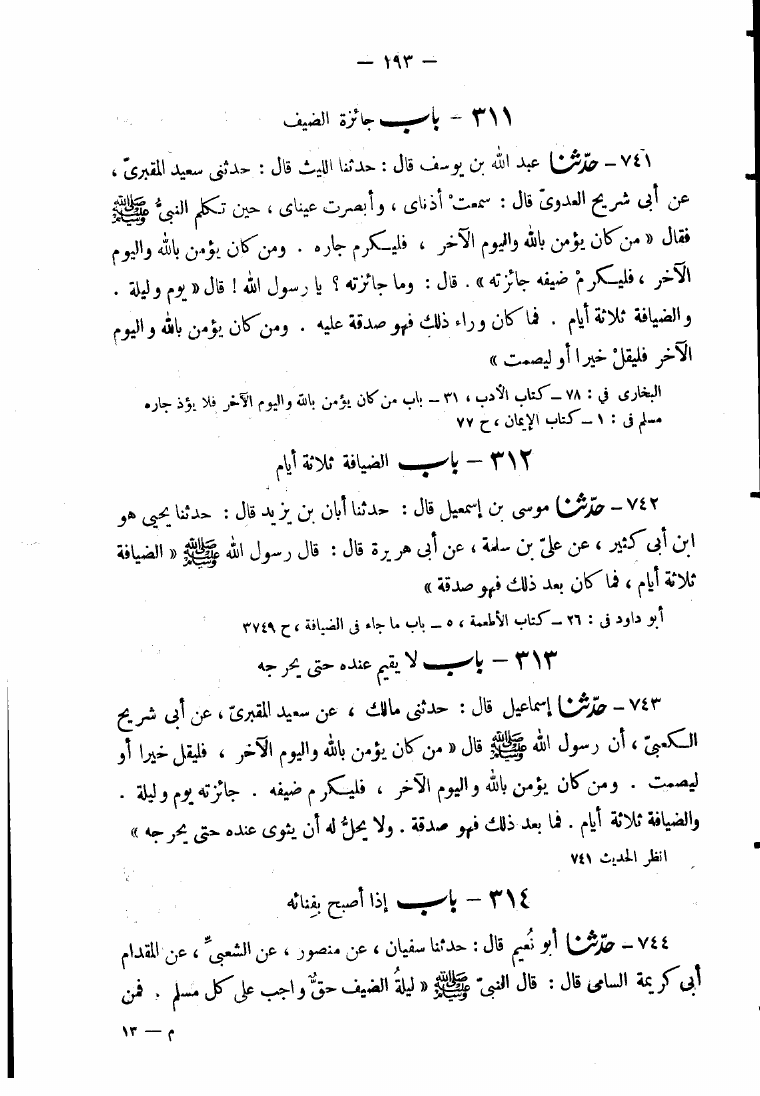 — ١٩٣ —
٣١١ – باب جائزة الضيف
٧٤١ – حدّثنا عبد الله بن يوسف قال : حدثنا الليث قال : حدثنى سعيد المقبرىّ ،
عن أبى شريح العدوىّ قال : سمعتْ أذناى ، وأبصرت عيناى ، حين تكلم النبىُّ ﷺ
فقال « من كان يؤمن بالله واليوم الآخر ، فليكرم جاره . ومن كان يؤمن بالله واليوم
الآخر ، فليكرمْ ضيفه جائزته » . قال : وما جائزته ؟ يا رسول الله ! قال « يوم وليلة .
والضيافة ثلاثة أيام . فما كان وراء ذلك فهو صدقة عليه . ومن كان يؤمن بالله واليوم
الآخر فليقلْ خيرا أو ليصمت »
البخارى فى : ٧٨ – كتاب الأدب ، ٣١ – باب من كان يؤمن بالله واليوم الآخر فلا يؤذ جاره
مسلم فى : ١ – كتاب الإيمان ، ح ٧٧
٣١٢ – باب الضيافة ثلاثة أيام
٧٤٢ – حدّثنا موسى بن إسمعيل قال : حدثنا أبان بن يزيد قال : حدثنا يحيى هو
ابن أبى كثير ، عن علىّ بن سلمة ، عن أبى هريرة قال : قال رسول الله ﷺ « الضيافة
ثلاثة أيام ، فما كان بعد ذلك فهو صدقة »
أبو داود فى : ٢٦ – كتاب الأطعمة ، ٥ – باب ما جاء فى الضيافة ، ح ٣٧٤٩
٣١٣ – باب لا يقيم عنده حتى يحرجه
٧٤٣ – حدّثنا إسماعيل قال : حدثنى مالك ، عن سعيد المقبرىّ ، عن أبى شريح
الكعبىّ ، أن رسول الله ﷺ قال « من كان يؤمن بالله واليوم الآخر ، فليقل خيرا أو
ليصمت . ومن كان يؤمن بالله واليوم الآخر ، فليكرم ضيفه . جائزته يوم وليلة .
والضيافة ثلاثة أيام . فما بعد ذلك فهو صدقة . ولا يحلُّ له أن يثوى عنده حتى يحرجه »
انظر الحديث ٧٤١
٣١٤ – باب إذا أصبح بفِنائه
٧٤٤ – حدّثنا أبو نُعيم قال : حدثنا سفيان ، عن منصور ، عن الشعبىِّ ، عن المقدام
أبى كريمة السامى قال : قال النبىّ ﷺ « ليلةُ الضيف حقٌّ واجب على كل مسلم . فمن
م — ١٣